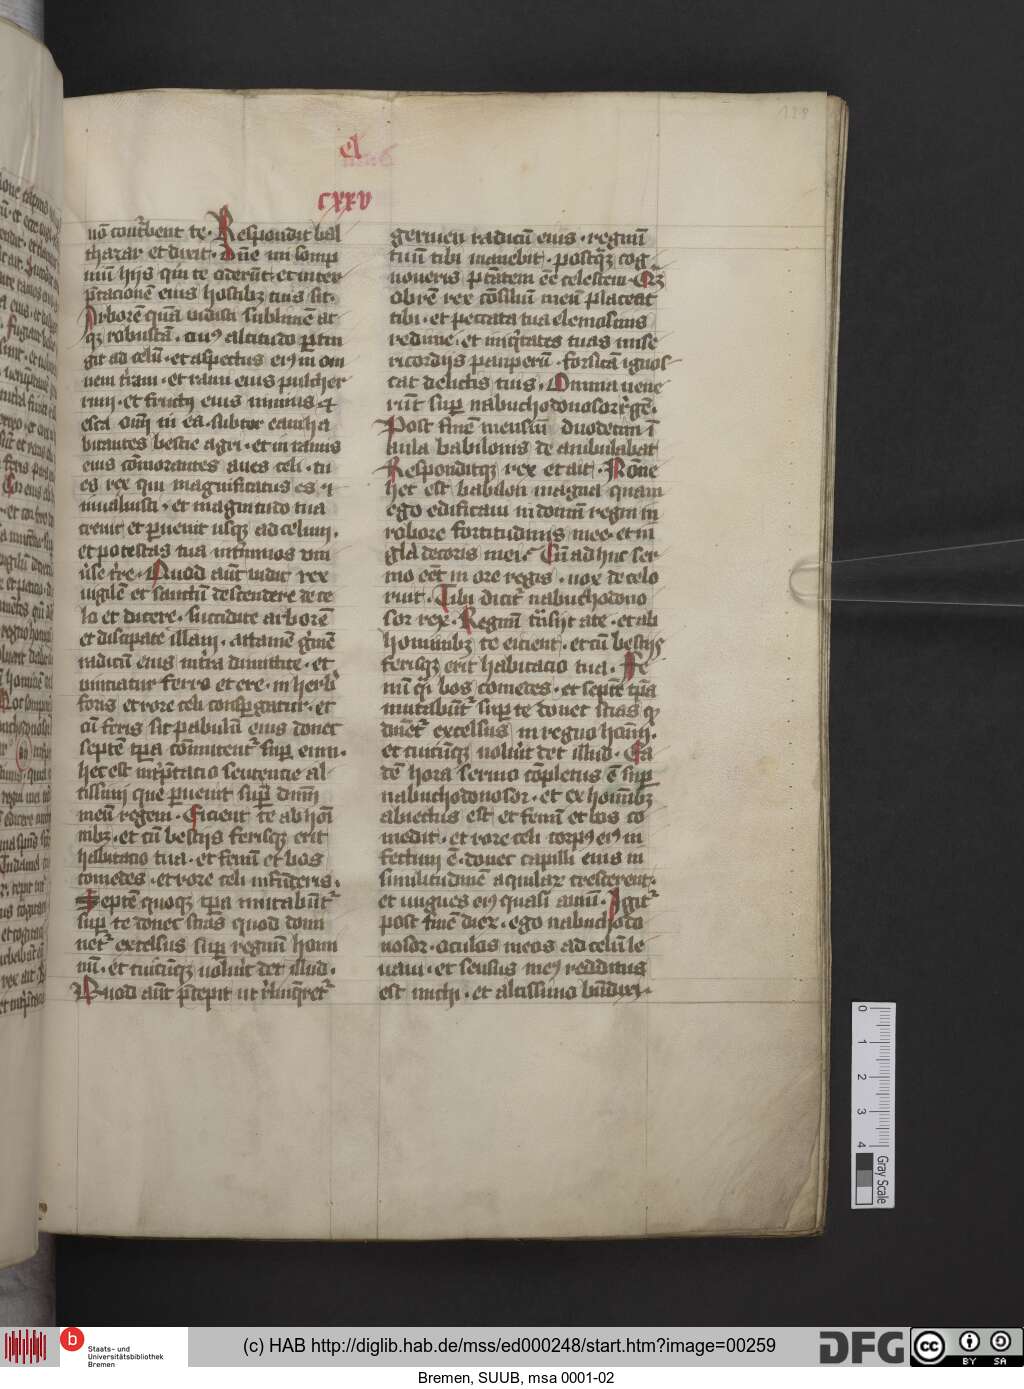 el
cxxv
nō cont̄bent te · Respondit bal
thazar et dixit · Dn̄e mi somp
niū hijs qui te oderūt · et inter
p̄tacionē eius hostibꝫ tuis sit ·
Arborē quā vidisti sublimē at
qꝫ robustā · cuiꝯ altitudo ꝑtin
git ad celū · et aspectus eiꝯ in om
nem t̄ram · et rami eius pulcher
rimi · et fructꝯ eius nimius · ⁊
esca oīm in ea · subter eam ha
bitantes bestie agri · et in ramis
eius cōmorantes aues celi · tu
es rex qui magnificatus es ⁊
inualuisti · et magnitudo tua
creuit et ꝑuenit usqꝫ ad celum ·
et potestas tua in t̄minos vni
ūse t̄re · Quod aūt vidit rex
vigilē et sanctū descendere de ce
lo et dicere · succidite arborē
et dissipate illam · attamē ḡmē
radicū eius in t̄ra dimittite · et
vinciatur ferro et ere · in herb̄
foris et rore celi consꝑgatur · et
cū feris sit pabulū eius donec
septē tꝑa cōmutent᷑ suꝑ eum ·
hec est int̄p̄tacio sentencie al
tissimi que ꝑuenit suꝑ dnm̄
meū regem · Eicient te ab hoī
nibꝫ · et cū bestijs ferisqꝫ erit
habitacio tua · et fenū et bos
comedes · et rore celi infūderis ·
Septē quoqꝫ tꝑa mutabūt᷑
suꝑ te donec scias quod domi
net᷑ excelsus suꝑ regnū homi
nū · et cuicūqꝫ voluīt det illud ·
Quod aūt p̄cepit ut r̄linq̄ret᷑
germen radicū eius · regnū
tuū tibi manebit · postqꝫ cog
noueris p̄tātem eē celestem · Qꝫ
obrē rex cōsiliū meū placeat
tibi · et peccata tua elemosinis
redime · et iniq̄tates tuas mise
ricordijs pauperū · forsitā ignos
cat delictis tuis · Omnia vene
rūt suꝑ nabuchodonosor r̄gē ·
Post finē mensiū duodecim ī
aula babilonis de ambulabat
Responditqꝫ rex et ait · Nōne
hec est babilon magna quam
ego edificaui in domū regni in
robore fortitudinis mee · et in
gl̄a decoris mei · Cū ad huc ser
mo eēt in ore regis · vox de celo
ruit · Tibi dicit᷑ nabuchodono
sor rex · Regnū t̄nsijt a te · et ab
hominibꝫ te eicient · et cū bestijs
ferisqꝫ erit habitacio tua · Fe
nū q̄i bos comedes · et septē tꝑa
mutabūt᷑ suꝑ te donec scias qꝫ
dn̄et᷑ excelsus in regno hoīm ·
et cuicūqꝫ voluīt det illud · Ea
dē hora sermo cōpletus ē suꝑ
nabuchodonosor · et ex homībꝫ
abiectus est et fenū et bos co
medit · et rore celi corpꝯ eiꝯ in
fectum ē · donec capilli eius in
similitudinē aquilaꝝ crescerent ·
et ungues eiꝯ quasi auiū · Igit᷑
post finē dieꝝ · ego nabuchodo
nosor · oculos meos ad celū le
uaui · et sensus meꝯ redditus
est michi · et altissimo bn̄dixi ·
0
1
2
3
4
Gray Scale
b
Staats- und
Universitätsbibliothek
Bremen
(c) HAB http://diglib.hab.de/mss/ed000248/start.htm?image=00259
DFG
cc
BY SA
Bremen, SUUB, msa 0001-02